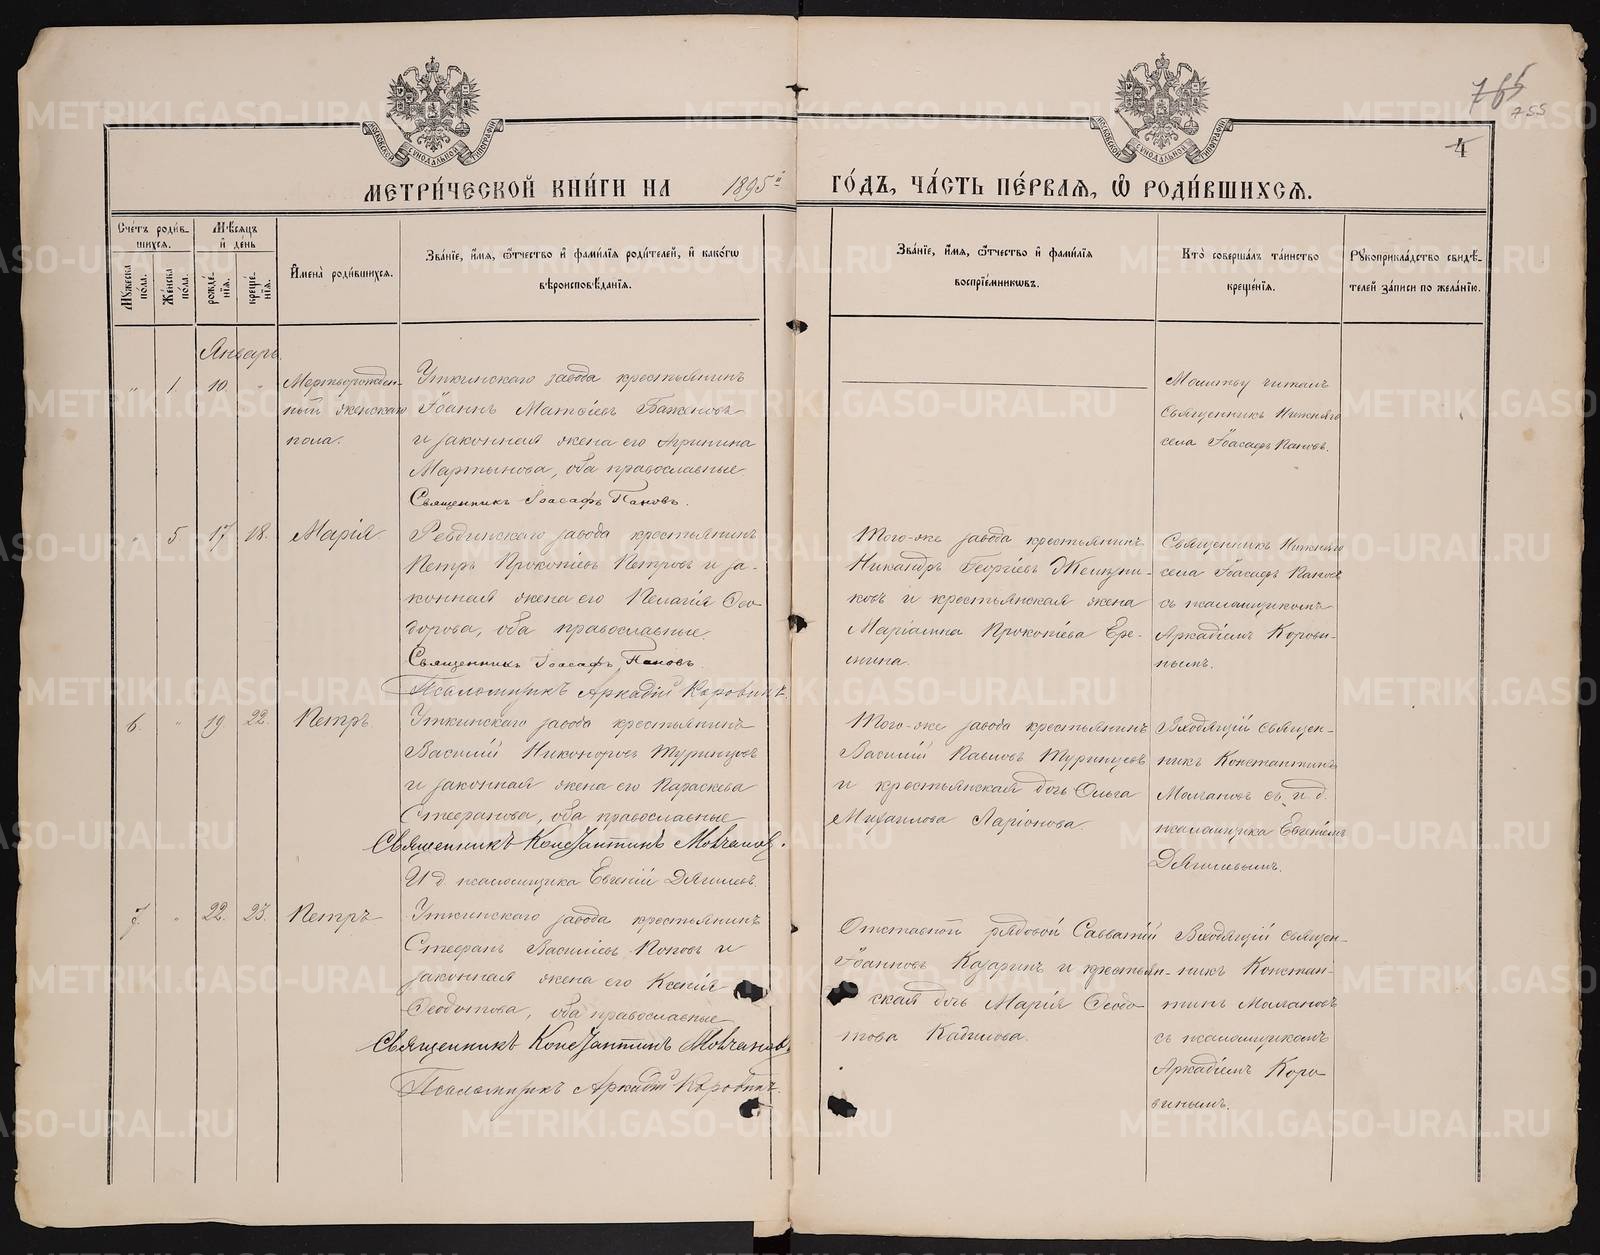 765
755
4
МЕТРИ́ЧЕСКОЙ КНИ́ГИ НА 1895й ГО́ДЪ, ЧА́СТЬ ПЕ́РВАЯ, Ѡ҆ РОДИ́ВШИХСЯ.
Сче́тъ роди́вшихся.
Мѣ́сяцъ и҆ де́нь
Мꙋ́жеска по́ла.
Же́нска по́ла.
рожде́нїя.
креще́нїя.
И҆мена̀ роди́вшихся.
Зва́нїе, и҆́мя, ѻ҆́тчество и҆ фами́лїя роди́телей, и҆ како́гѡ
вѣроисповѣ́данїя.
Зва́нїе, и҆́мя, ѻ҆́тчество и҆ фами́лїя
воспрїе́мникѡвъ.
Кто̀ соверша́лъ та́инство
креще́нїя.
Рꙋкоприкла́дство свидѣ́-
телей за́писи по жела́нїю.
Январь.
" 1 10. " Мертворожден-
ный женскаго
пола.
Уткинскаго завода крестьянинъ
Іоаннъ Матѳіевъ Бажновъ
и законная жена его Агрипина
Мартынова, оба православные
Священникъ Іоасафъ Пановъ.
Молитву читалъ
Священникъ Нижняго
села Іоасафъ Пановъ.
" 5 17. 18. Марія
Ревдинскаго завода крестьянинъ
Петръ Прокопіевъ Петровъ и за-
конная жена его Пелагія Ѳео-
дорова, оба православные.
Священникъ Іоасафъ Пановъ.
Псаломщикъ Аркадій Коровинъ.
Того-же завода крестьянинъ
Никандръ Георгіевъ
ковъ и крестьянская жена
Маріамна Прокопіева Ере-
мина.
Священникъ Нижняго
села Іоасафъ Пановъ
съ псаломщикомъ
Аркадіемъ Корови-
нымъ.
6. " 19. 22. Петръ
Уткинскаго завода крестьянинъ
Василій Никоноровъ Туринцовъ
и законная жена его Параскева
Стефанова, оба православные
Священникъ Константинъ Молчановъ.
И д. псаломщика Евгеній Дягилевъ.
Того-же завода крестьянинъ
Василій Павловъ Туринцовъ
и крестьянская дочь Ольга
Михаилова Ларіонова.
Входящій священ-
никъ Константинъ
Молчановъ съ и. д.
псаломщика Евгеніемъ
Дягилевымъ.
7. " 22. 23. Петръ
Уткинскаго завода крестьянинъ
Стефанъ Василіевъ Поповъ и
законная жена его Ксенія
Ѳеодотова, оба православные
Священникъ Константинъ Молчановъ
Псаломщикъ Аркадій Коровинъ.
Отставной рядовой Савватій
Іоанновъ Казаринъ и крестьян-
ская дочь Марія Ѳеодо-
това Кадилова.
Входящій священ-
никъ Констан-
тинъ Молчановъ
съ псаломщикомъ
Аркадіемъ Коро-
винымъ.